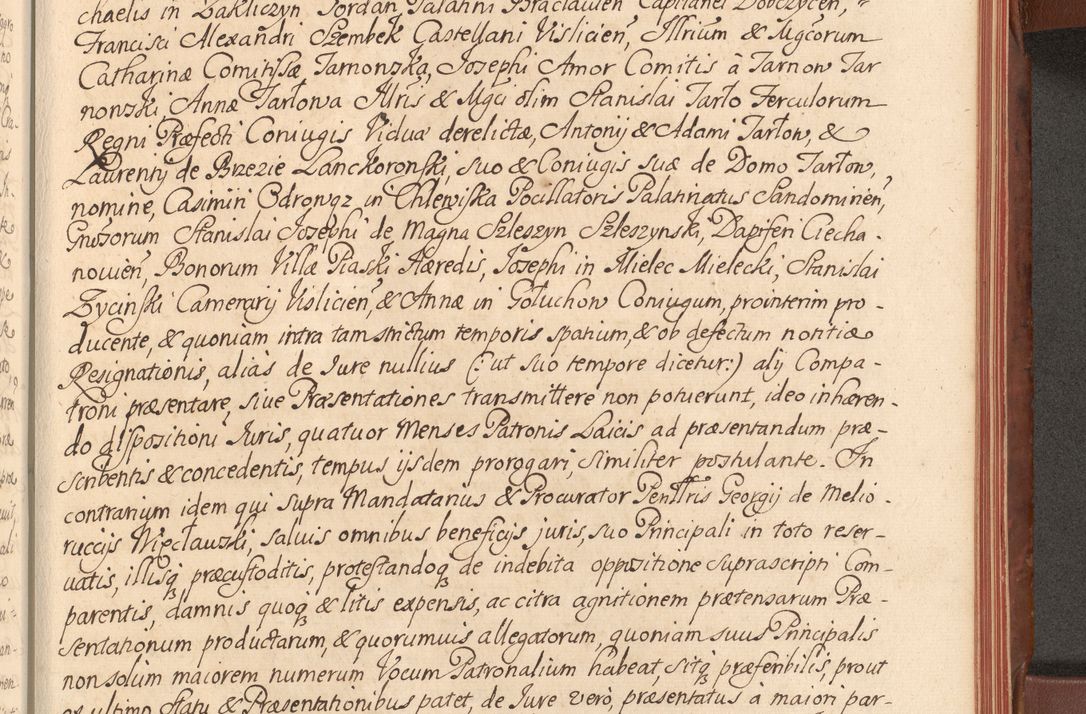 chaelis in Zakliczyn Jordan Palatini Braclavien̄, Capitanei Dobczycen̄, =
Francisci Alexandri Szembek Castellani Vislicien̄, Illrium & Mgcorum
Catharinæ Comitissæ Tarnowska, Josephi Amor Comitis à Tarnow Tar
nowski, Annæ Tarłowa Illris & Mgci olim Stanislai Tarło Ferculorum
Regni Præfecti Coniugis Vidua derelictæ, Antonij & Adami Tarłow, &
Laurentij de Brzezie Lanckoronski, suo & Coniugis suæ de Domo Tarłow,
nomine, Casimiri Odrowąz in Chlewiska Pocillatoris Palatinatus Sandomirien̄,
Gnosorum Stanislai Josephi de Magna Szleszyn Szleszynski, Dapiferi Ciecha-
novien̄, Bonorum Villæ Piaski Hæredis, Josephi in Mielec Mielecki, Stanislai
Zycinski Camerarij Vislicien̄, & Annæ in Gołuchow Coniugum, prointerim pro-
ducente, & quoniam intra tam strictum temporis spatium, & ob defectum notitiæ
Resignationis, alias de Jure nullius (: ut suo tempore dicetur:) alij Compa-
troni præsentare, sive Præsentationes transmittere non potuerunt, ideo inhæren-
do dispositioni Juris, quatuor Menses Patronis Laicis ad præsentandum præ-
scribentis & concedentis, tempus ijsdem prorogari, similiter postulante. In
contrarium idem qui supra Mandatarius & Procurator Penttris Georgij de Melio-
ruccijs Więcławski, salvis omnibus beneficijs juris, suo Principali in toto reser-
vatis, illisq præcustoditis, protestandoq de indebita oppositione suprascripti Com-
parentis, damnis quoq & litis expensis, ac citra agnitionem prætensarum Præ-
sentationum productarum, & quorumvis allegatorum, quoniam suus Principalis
non solum maiorem numerum Vocum Patronalium habeat, sitq præferibilis, prout
ex ultimo Statu & Præsentationibus patet, de Jure verò, præsentatus à maiori par-